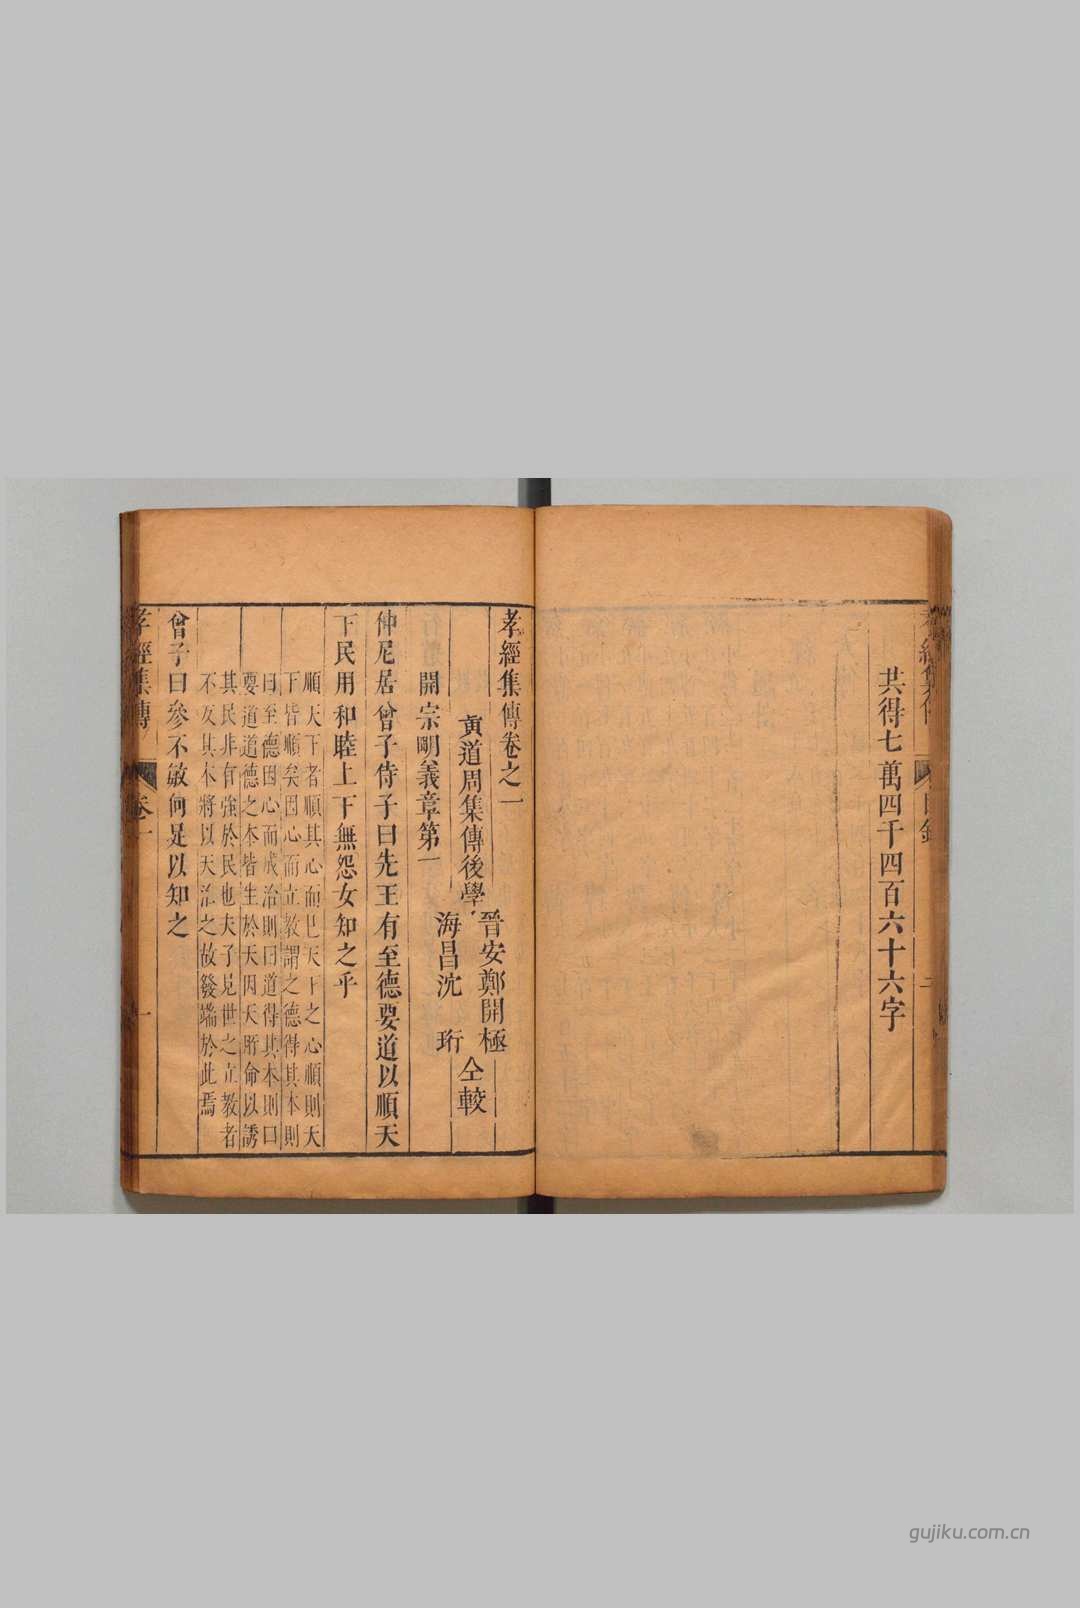 共得七萬四千四百六十六字
孝經集傳卷之一
黃道周集傳後學
晉安鄭開極
海昌沈珩
仝較
開宗明義章第一
仲尼居曾子侍子曰先王有至德要道以順天
下民用和睦上下無怨女知之乎
順天下者順其心而已天下之心順則天
下皆順矣因心而立教謂之德得其本則
曰至德因心而成治則曰道得其本則曰
要道道德之本皆生於天因天所命以誘
其民非有強於民也夫子見世之立教者
不反其本將以天治之故發端於此焉
曾子曰參不敏何足以知之
孝經集傳
卷一
一
gujiku.com.cn